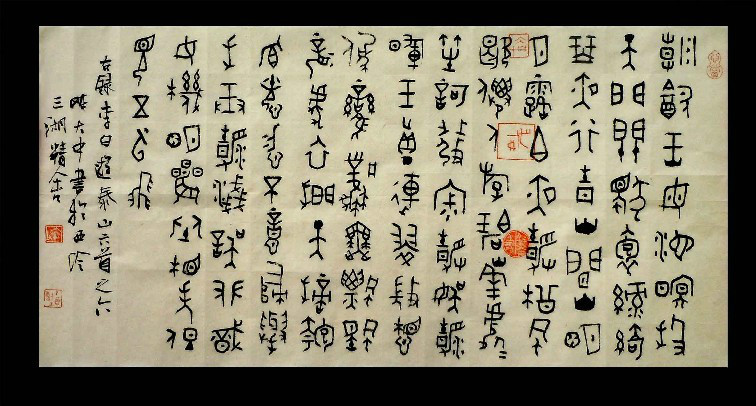 朝飲王母池暝投
天門關獨抱綠綺
琴夜行青山間山明
月露白夜靜松風
歇仙人游碧峰處處
笙歌發寂靜娛清
暉王真連翠微想
像鸞鳳舞飄颻龍虎
衣捫天摘匏
瓜恍惚不憶歸舉
手弄清淺誤攀織
女機明晨坐相失但
見五雲飛
右錄李白遊泰山六首之六
大中書於西泠
三湖精舍